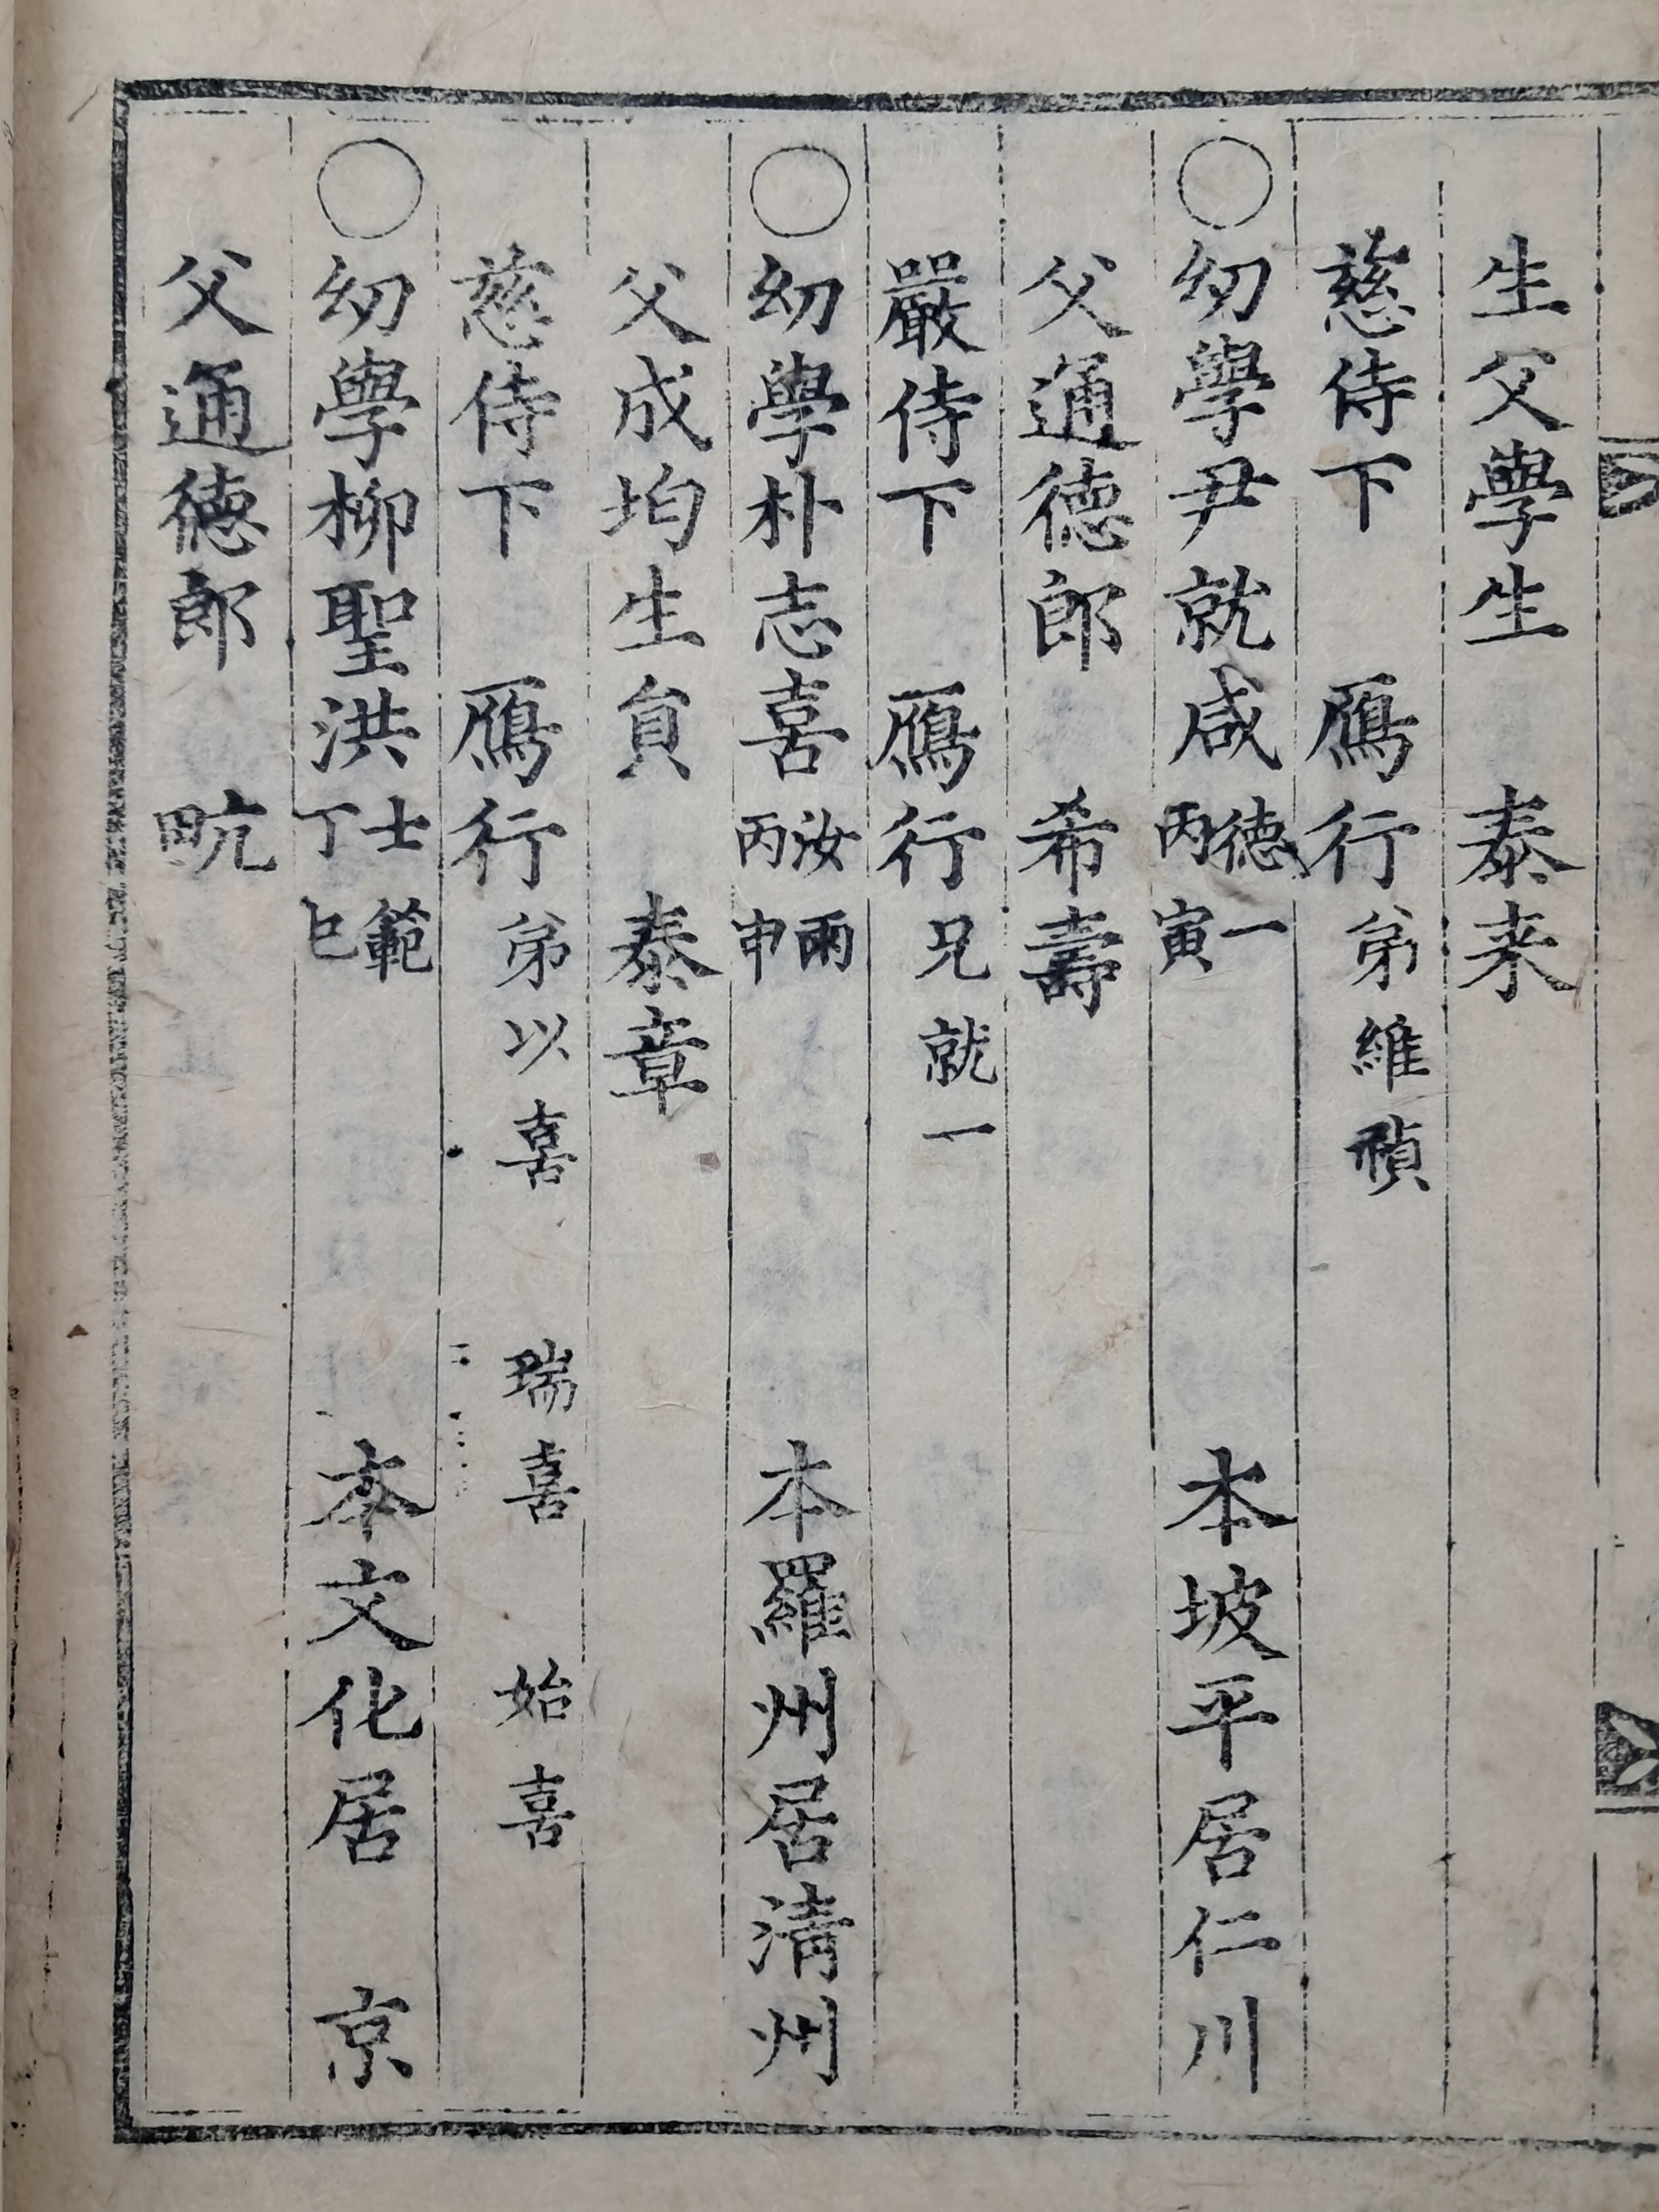 生父學生 泰来
慈侍下 鴈行 弟維禎
○幼學尹就咸 德一 丙寅 本坡平居仁川
父通德郎 希壽
嚴侍下 鴈行 兄就一
○幼學朴志喜 汝雨 丙申 本羅州居淸州
父成均生員 泰章
慈侍下 鴈行 弟以喜 瑞喜 始喜
○幼學柳聖洪 士範 丁巳 本文化居 京
父通德郎 㽘